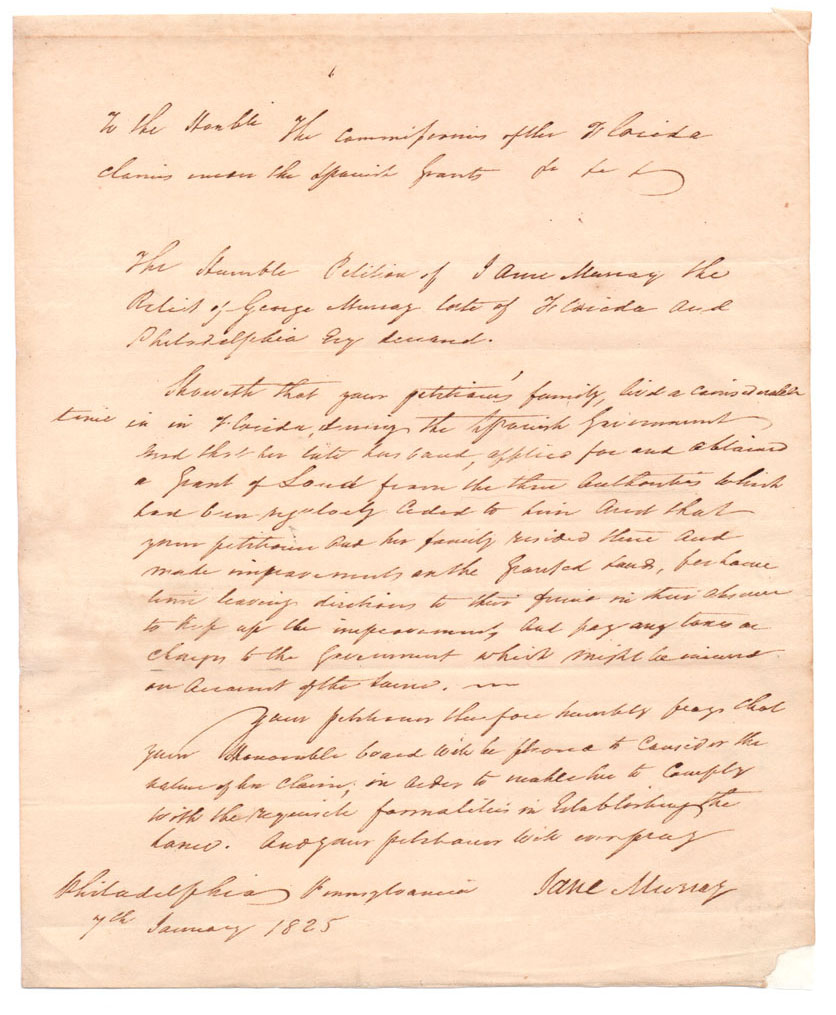 To the Honble The Commissioners of the Florida
Claims under the Spanish Grants &c &c &c
The Humble Petition of Jane Murray the
Relict of George Murray late of Florida and
Philadelphia Esq deceased.
Sheweth that your petitioners family, livd a considerable
time in in Florida, during the Spanish Government
And that her late husband, applied for and obtained
a Grant of Land from the then Authorities which
had been regularly Ceded to him And that
your petitioner And her family resided there And
made improvements on the Granted Lands, for some
time leaving directions to their friend in their absence
to keep up the improvements And pay any taxes or
charges to the Government which might be incurred
on Account of the Same.
Your petitioner therefore humbly prays that
your Honourable board will be pleased to Consider the
nature of her Claim, in order to enable her to Comply
with the requisite formalities in Establishing the
Same. And your petitioner will ever pray
Philadelphia Pennsylvania Jane Murray
7th January 1825